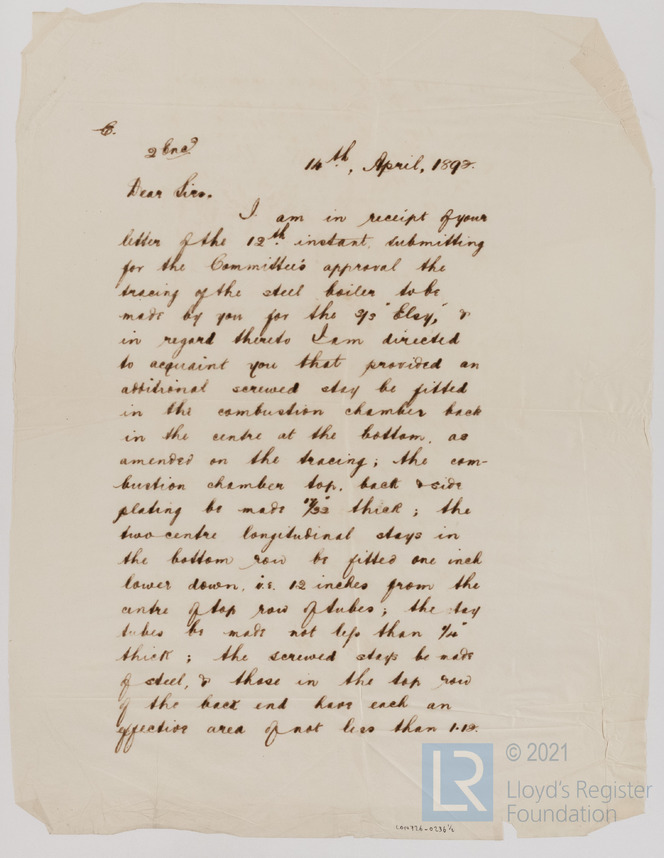 C.
2 Encs
14th, April, 1892.
Dear Sirs.
I am in receipt of your
letter of the 12th instant, submitting
for the Committee's approval the
tracing of the steel boiler to be
made by you for the S/S "Elsy," &
in regard thereto I am directed
to acquaint you that provided an
additional screwed stay be fitted
in the combustion chamber back
in the centre at the bottom, as
amended on the tracing; the com-
bustion chamber top, back & side
plating be made 17/32" thick; the
two centre longitudinal stays in
the bottom row be fitted one inch
lower down, i.e. 12 inches from the
centre of top row of tubes; the stay
tubes be made not less than 1/4"
thick; the screwed stays be made
of steel, & those in the top row
of the back end have each an
effective area of not less than
LR
© 2021
Lloyd's Register
Foundation